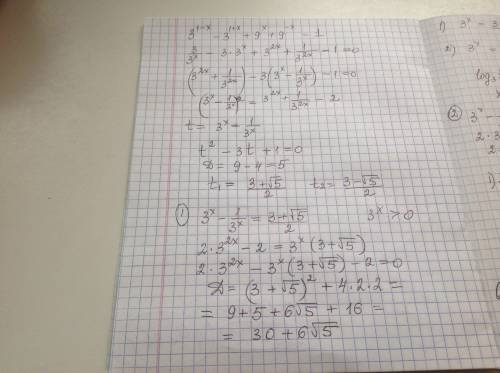 3^{1-x} - 3^{1+x} + 9^x + 9^{-x} = 1
3/3^x - 3·3^x + 3^{2x} + 1/3^{2x} - 1 = 0
(3^{2x} + 1/3^{2x}) - 3(3^x - 1/3^x) - 1 = 0
(3^x - 1/3^x)^2 = 3^{2x} + 1/3^{2x} - 2
t = 3^x - 1/3^x
t^2 - 3t + 1 = 0
D = 9 - 4 = 5
t_1 = (3+√5)/2 t_2 = (3-√5)/2
① 3^x - 1/3^x = (3+√5)/2 3^x > 0
2·3^{2x} - 2 = 3^x (3+√5)
2·3^{2x} - 3^x (3+√5) - 2 = 0
D = (3+√5)^2 + 4·2·2 =
= 9 + 5 + 6√5 + 16 =
= 30 + 6√5
1) 3^x =
2) 3^x =
log_3
② 3^x -
2·
2
1).